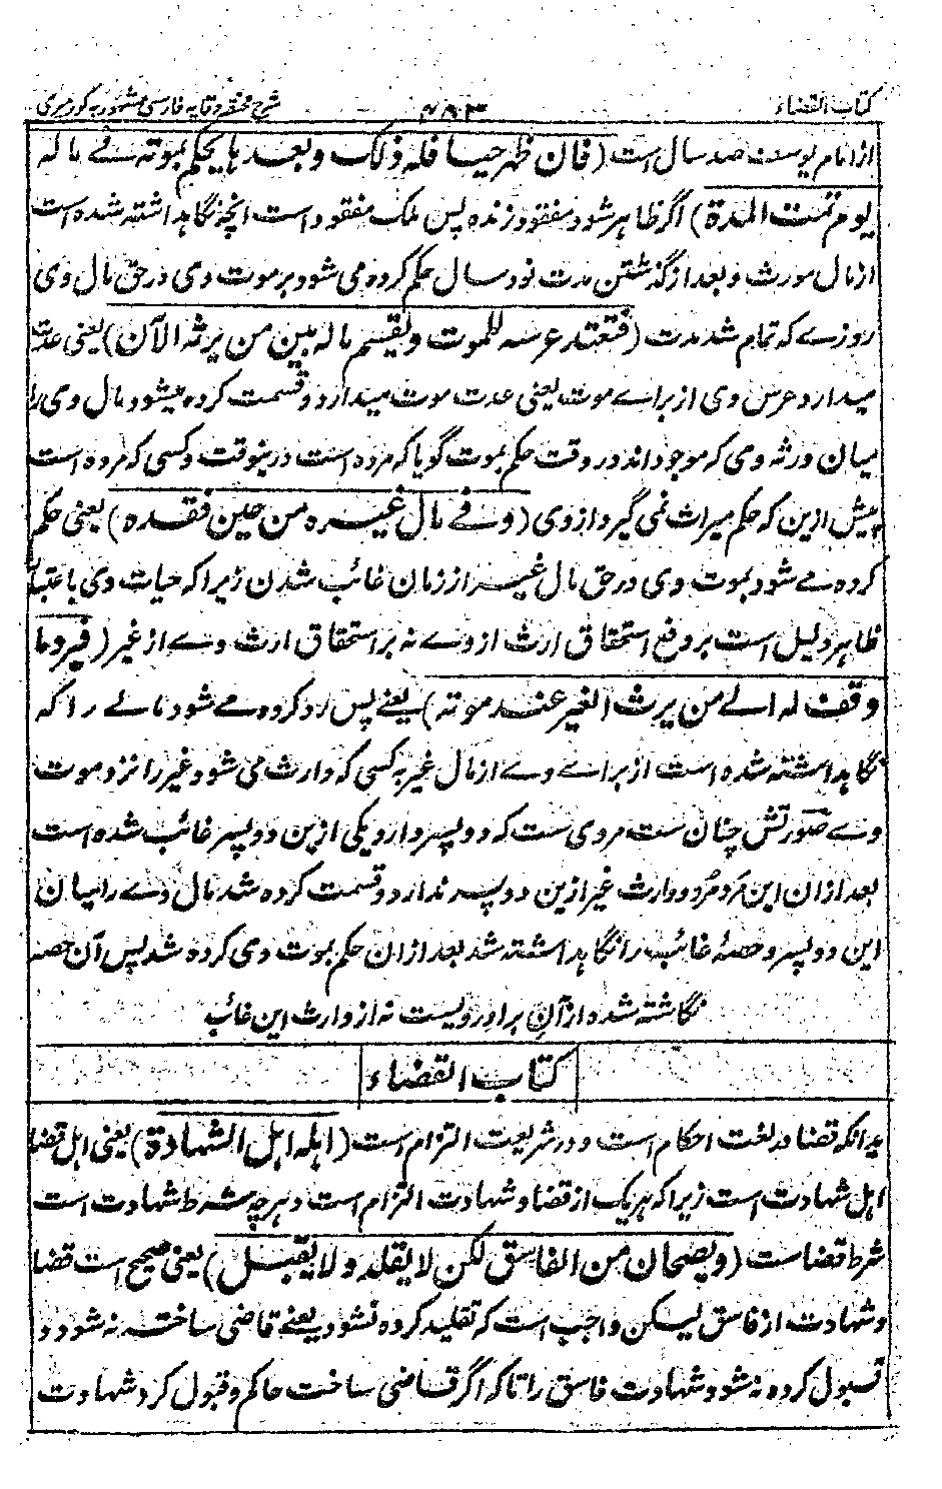 کتاب القضاء ۴۸۳ شرح مختصر وقایه فارسی مشهور به کور میری
از امام یوسف صد سال است (فان ظهر حیا فله ذلک وبعدها یحکم بموته فے ماله
یوم تمت المدة) اگر ظاهر شود مفقود زنده پس ملک مفقود است انچه نگاهداشته شده است
از مال مورث و بعد از گذشتن مدت نود سال حکم کرده می شود بر موت وی در حق مال وی
روزے که تمام شد مدت (فتعتد عرسه للموت ویقسم ماله بین من یرثه الآن) یعنی عدت
میدارد عرس وی از براے موت یعنی عدت موت میدارد و قسمت کرده میشود مال وی را
میان ورثه وی که موجود اند در وقت حکم بموت گویا که مرده است درینوقت و کسی که مرده است
پیش ازین که حکم میراث نمی گیرد از وی (وفے مال غیره من حین فقده) یعنی حکم
کرده مے شود بموت وی در حق مال غیر از زمان غائب شدن زیرا که حیات وی باعتبار
ظاهر دلیل است بر دفع استحقاق ارث از وے نه بر استحقاق ارث وے از غیر (فیرد ما
وقف له الے من یرث الغیر عند موته) یعنے پس رد کرده مے شود مالے را که
نگاهداشته شده است از براے وے از مال غیر به کسی که وارث می شود غیر را نزد موت
وے صورتش چنان ست مردی ست که دو پسر دارد یکی ازین دو پسر غائب شده است
بعد ازان این مرد مُرد و وارث غیر ازین دو پسر ندارد و قسمت کرده شد مال وے را میان
این دو پسر و حصهٔ غائب را نگاهداشته شد بعد ازان حکم بموت وی کرده شد پس آن حصه
نگاشته شده از آن برادر ویست نه از وارث این غائب
کتاب القضاء
بدانکه قضا در لغت احکام است و در شریعت التزام است (اهله اهل الشهادة) یعنی اهل قضا
اهل شهادت است زیرا که هر یک از قضا و شهادت التزام است و هرچه شرط شهادت است
شرط قضاست (ویصحان من الفاسق لکن لا یقلد ولا یقبل) یعنی صحیح است قضا
و شهادت از فاسق لیکن واجب است که تقلید کرده نشود یعنے قاضی ساخته نه شود و
قبول کرده نه شود شهادت فاسق را تا که اگر قاضی ساخت حاکم و قبول کرد شهادت